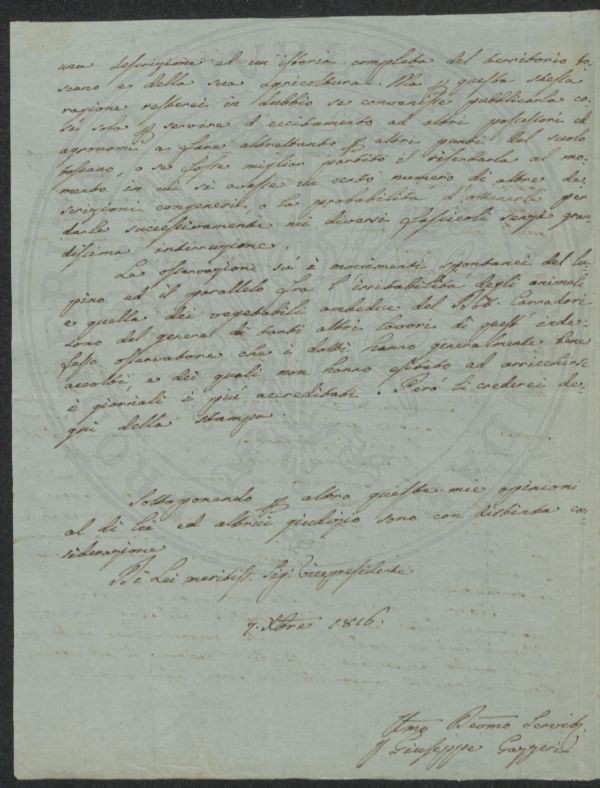 una descrizione ed un istoria completa del territorio to-
scano e della sua agricoltura. Ma p questa stessa
ragione resterei in dubbio se convenisse pubblicarla co-
sì sola p servire d'eccitamento ad altri possessori ed
agronomi a fare altrettanto p altri punti del suolo
toscano, o se fosse miglior partito il riserbarla al mo-
mento in cui si avesse un certo numero di altre de-
scrizioni congeneri, o la probabilità d'ottenerle per
darle successivamente nei diversi fascicoli senza gran-
dissima interruzione.
Le osservazioni su' i movimenti spontanei del lu-
pino ed il parallelo fra l'irritabilità degli animali
e quella dei vegetabili ambedue del Dott. Carradori
sono del genere di tanti altri lavori di quest'inde-
fesso osservatore che i dotti hanno generalmente bene
accolti, e dei quali non hanno esitato ad arricchirsi
i giornali i più accreditati. Però li crederei de-
gni della stampa.
Sottoponendo p altro queste mie opinioni
al di lei ed altrui giudizio sono con distinta con-
siderazione
Di Lei meritiss. Sig. Vicepresidente
7. Xbre 1816.
Umo Devmo Servit.
Giuseppe Gazzeri